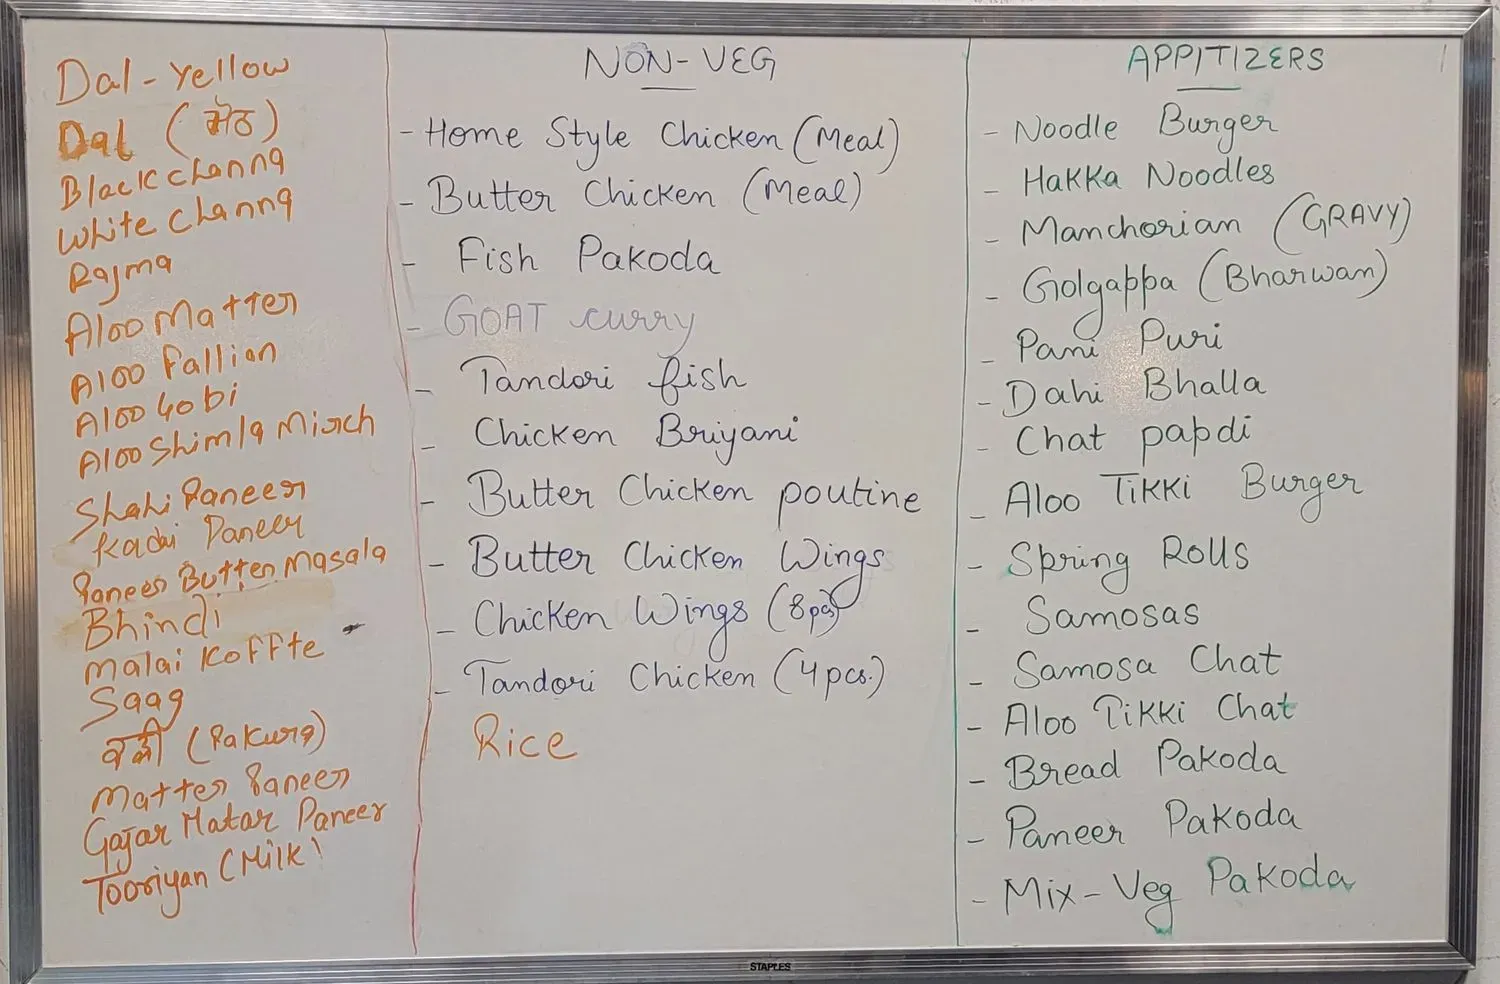 Dal - Yellow
Dal (ਮੋਠ)
Black Channa
White Channa
Rajma
Aloo Matter
Aloo Fallian
Aloo Gobi
Aloo Shimla Mirch
Shahi Paneer
Kadai Paneer
Paneer Butter Masala
Bhindi
Malai Koffte
Saag
(Pakura)
Matter Paneer
Gajar Matar Paneer
Tooriyan (Milk)
NON-VEG
- Home Style Chicken (Meal)
- Butter Chicken (Meal)
- Fish Pakoda
- GOAT curry
- Tandori fish
- Chicken Briyani
- Butter Chicken poutine
- Butter Chicken Wings
- Chicken Wings (8pcs)
- Tandori Chicken (4pcs.)
Rice
APPITIZERS
- Noodle Burger
- Hakka Noodles
- Manchorian (GRAVY)
- Golgappa (Bharwan)
- Pani Puri
- Dahi Bhalla
- Chat papdi
- Aloo Tikki Burger
- Spring Rolls
- Samosas
- Samosa Chat
- Aloo Tikki Chat
- Bread Pakoda
- Paneer Pakoda
- Mix-Veg Pakoda
STAPLES